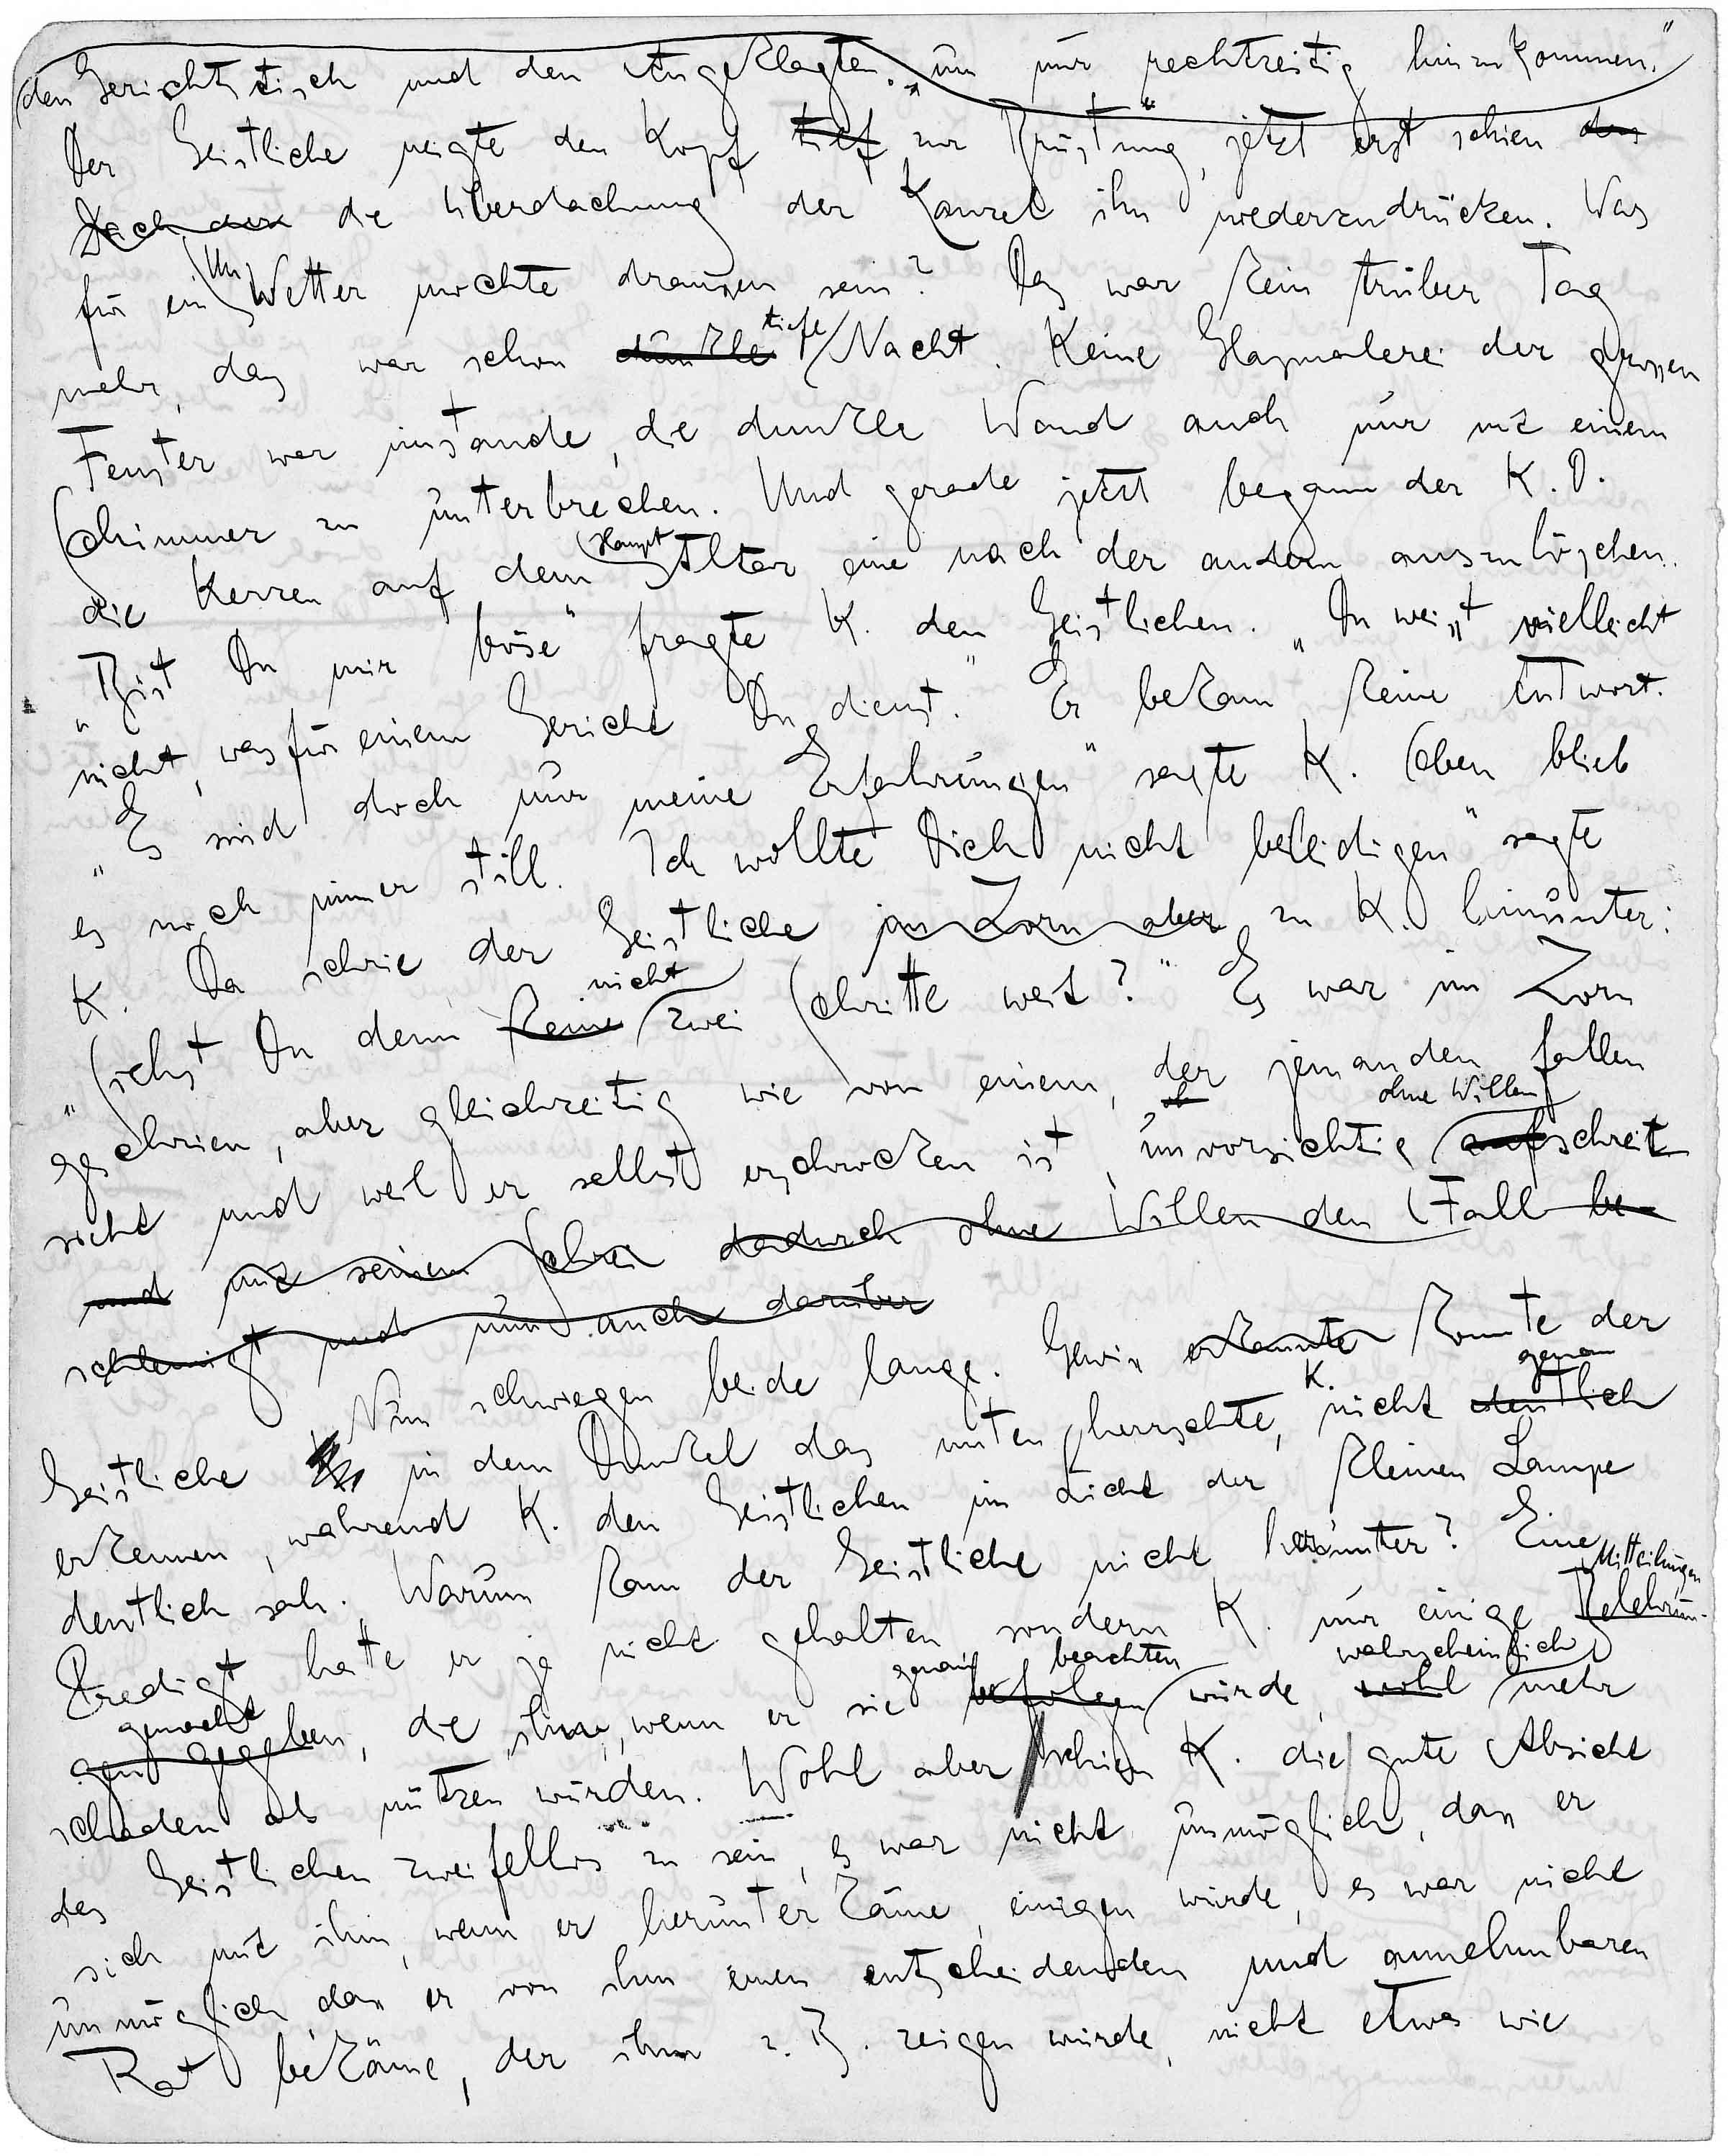 den Gerichtstisch und den Angeklagten. um nur rechtzeitig hinzukommen."
Der Geistliche neigte den Kopf tief zur Brüstung, jetzt erst schien das
Dach der die Überdachung der Kanzel ihn niederzudrücken. Was
für ein Un Wetter mochte draussen sein? Das war kein trüber Tag
mehr, das war schon dunkle tiefe Nacht. Keine Glasmalerei der grossen
Fenster war imstande, die dunkle Wand auch nur mit einem
Schimmer zu unterbrechen. Und gerade jetzt begann der K. D.
die Kerzen auf dem Haupt Altar eine nach der andern auszulöschen.
„Bist Du mir böse" fragte K. den Geistlichen. „Du weisst vielleicht
nicht, was für einem Gericht Du dienst." Er bekam keine Antwort.
„Es sind doch nur meine Erfahrungen" sagte K. Oben blieb
es noch immer still. Ich wollte Dich nicht beleidigen" sagte
K. Da schrie der Geistliche im Zorn aber zu K. hinunter:
„Siehst Du denn keine nicht zwei Schritte weit?" Es war im Zorn
geschrien, aber gleichzeitig wie von einem, der jemanden fallen
sieht und weil er selbst erschrocken ist, unvorsichtig ohne Willen aufschreit
und mit seinem Schrei dadurch ohne Willen den Fall be-
schleunigt und nun auch darüber
Nun schwiegen beide lange. Gewiss erkannte konnte der
Geistliche in dem Dunkel das unten herrschte, K. nicht deutlich genau
erkennen, während K. den Geistlichen im Licht der kleinen Lampe
deutlich sah. Warum kam der Geistliche nicht herunter? Eine
Predigt hatte er ja nicht gehalten sondern K. nur einige Belehrun- Mitteilungen
gen gegeben gemacht, die ihm, wenn er sie genau befolgen beachten würde, wohl wahrscheinlich mehr
schaden als nützen würden. Wohl aber schien K. die gute Absicht
des Geistlichen zweifellos zu sein, es war nicht unmöglich, dass er
sich mit ihm, wenn er herunterkäme, einigen würde, es war nicht
unmöglich, dass er von ihm einen entscheidenden und annehmbaren
Rat bekäme, der ihm z. B. zeigen würde, nicht etwa wie